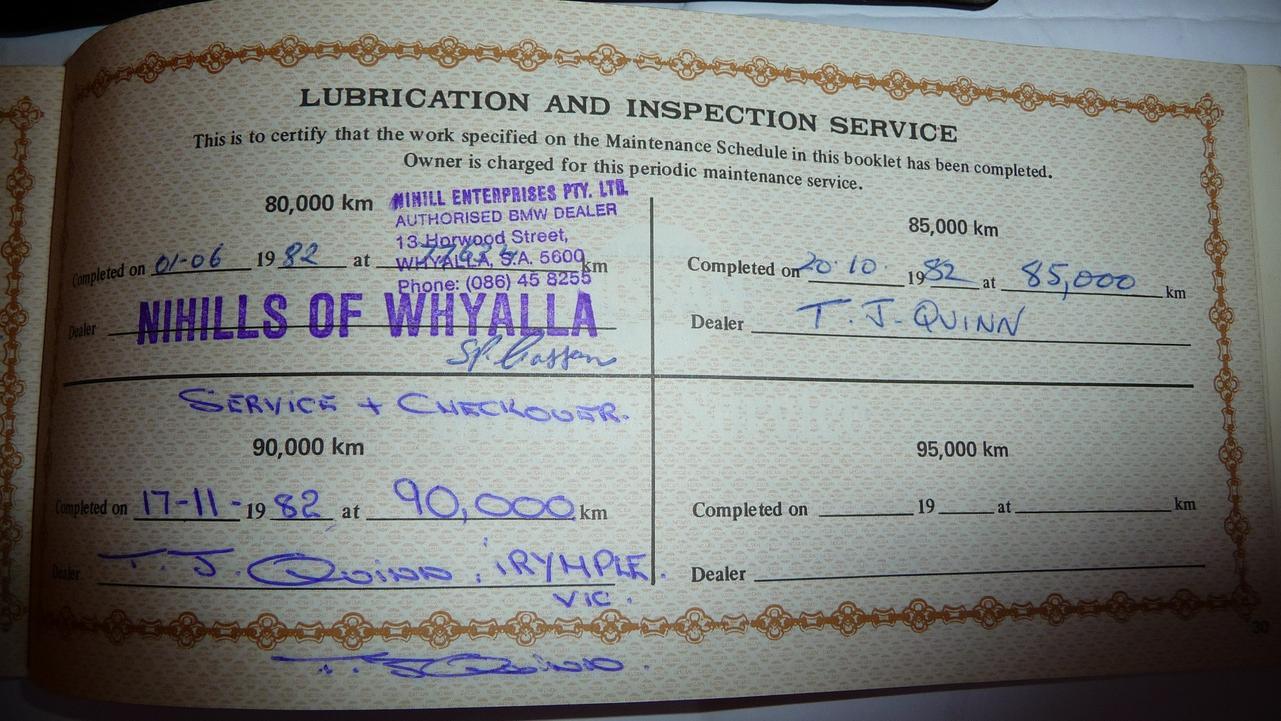 LUBRICATION AND INSPECTION SERVICE
This is to certify that the work specified on the Maintenance Schedule in this booklet has been completed.
Owner is charged for this periodic maintenance service.
80,000 km
NIHILL ENTERPRISES PTY. LTD.
AUTHORISED BMW DEALER
13 Horwood Street,
WHYALLA, S.A. 5600
Phone: (086) 45 8255
Completed on 01-06 1982 at km
Dealer NIHILLS OF WHYALLA
85,000 km
Completed on 20.10. 1982 at 85,000 km
Dealer T. J. QUINN
SERVICE + CHECKOVER.
90,000 km
Completed on 17-11-1982 at 90,000 km
Dealer T. J. Quinn, IRYMPLE.
VIC.
95,000 km
Completed on 19 at km
Dealer
30
T. J. Quinn.